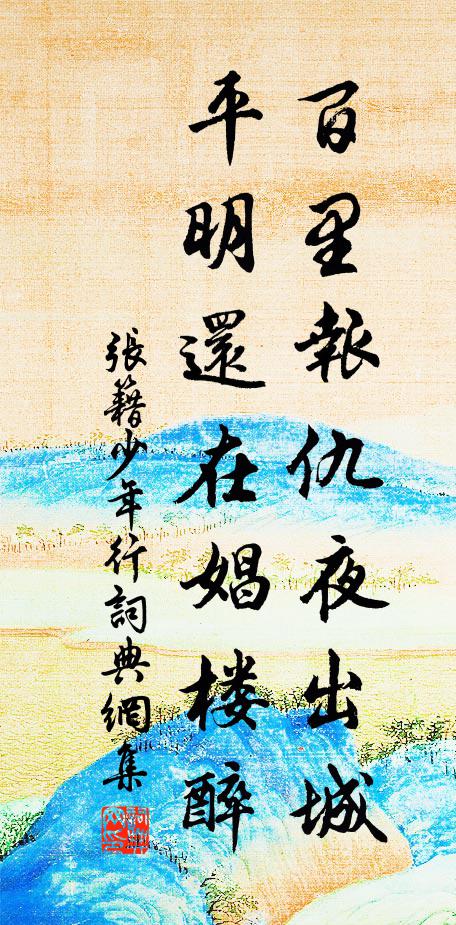 百里報仇夜出城
平明還在娼楼醉
張籍少年行詞典網集